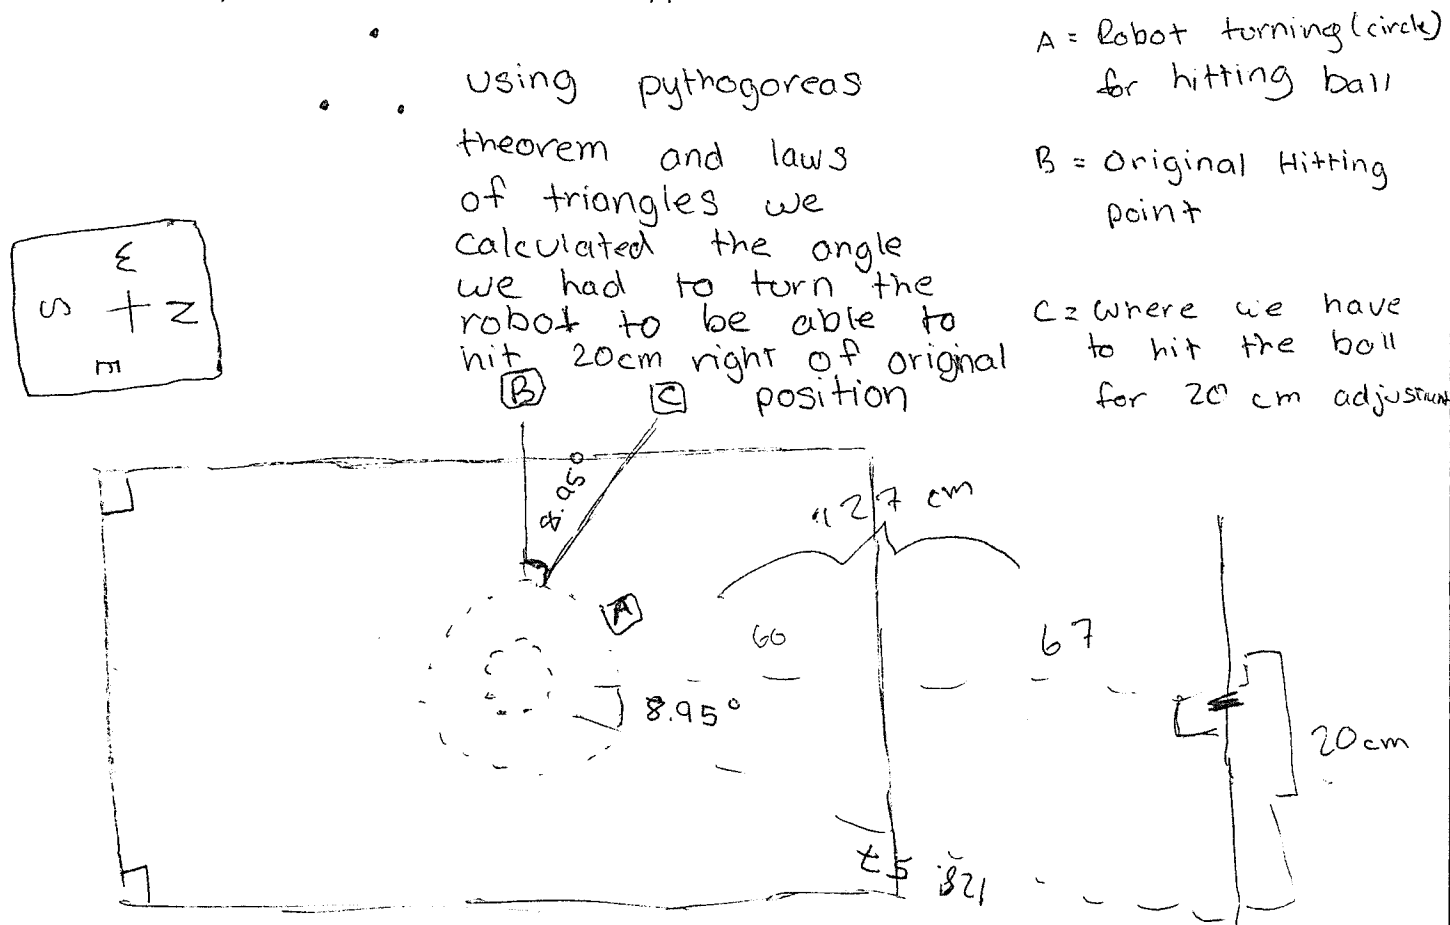 using pythogoreas
theorem and laws
of triangles we
calculated the angle
we had to turn the
robot to be able to
hit 20cm right of original
position
A = Robot turning (circle)
for hitting ball
B = Original Hitting
point
C = where we have
to hit the ball
for 20 cm adjustment
W
S N
E
B
C
8.95°
A
127 cm
60
67
8.95°
20cm